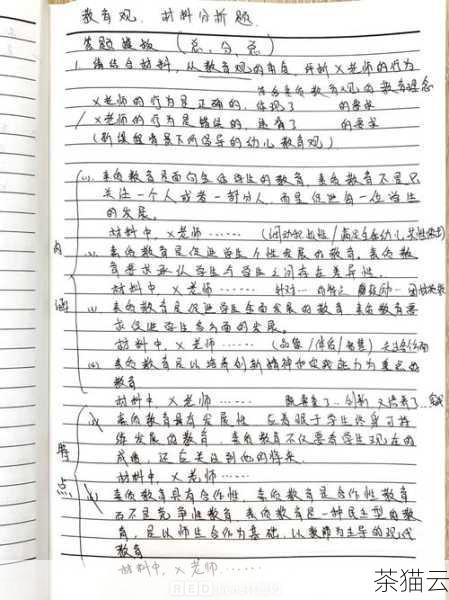 教育观 材料分析题
答题模板 (总,分,总)
1. 请结合材料,从教育观的角度,评析X老师的行为
X老师的行为是正确的,体现了 的要求
X老师的行为是错误的,违背了 的要求
(新课程背景下所倡导的幼儿教育观)
内涵
(1) 素质教育是面向全体学生的教育,素质教育不是只
关注一个人或者一部分人,而是促进每一位学生
的发展。
材料中,X老师……
素质教育是促进学生个性发展的教育,素质教
育要求承认学生与学生之间存在差异性,
材料中,X老师……
素质教育是促进学生全面发展的教育 素质教育要
求促进学生各方面的发展。
材料中,X老师……
素质教育是以培养创新精神和实践能力为重点的
教育
材料中,X老师……
特点
素质教育具有发展性 应着眼于学生终身可持
续发展的教育,素质教育不仅要看学生现在的
成绩,还应关注到他的将来.
材料中,X老师……
素质教育具有合作性,素质教育是合作性教育
而不是竞争性教育 素质教育是一种民主型的教
育,是以师生合作为基础,以教师为主导的现代
教育
材料中,X老师……
茶猫云